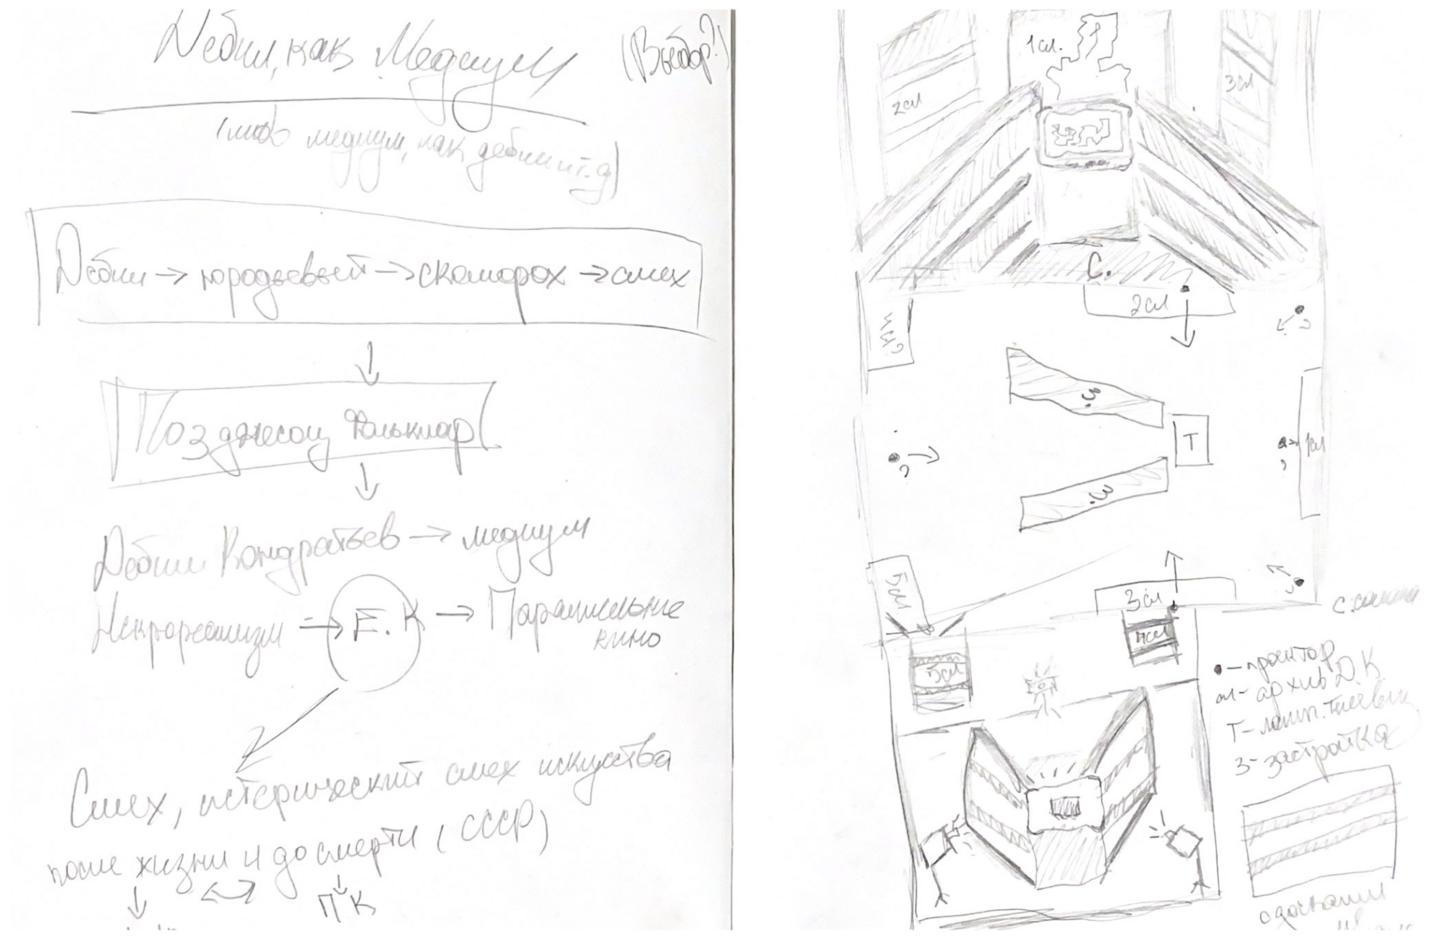 Дебил, как Медиум (Выбор?)
медиум, как дебил и т.д)
Дебил → юродивый → скоморох → смех
Поздесоц Фольклор
Дебил Кондратьев → медиум
Некрореализм → Е.К → Параллельное
кино
Смех, истерический смех искуства
после жизни и до смерти (СССР)
ПК
1сл.
2сл
3сл
С.
2сл
З.
Т
З.
1сл
5сл
3сл
4сл
5сл
•–проэктор
сл- архив Д.К
Т-ламп.телевизор
З-застройка
с досками